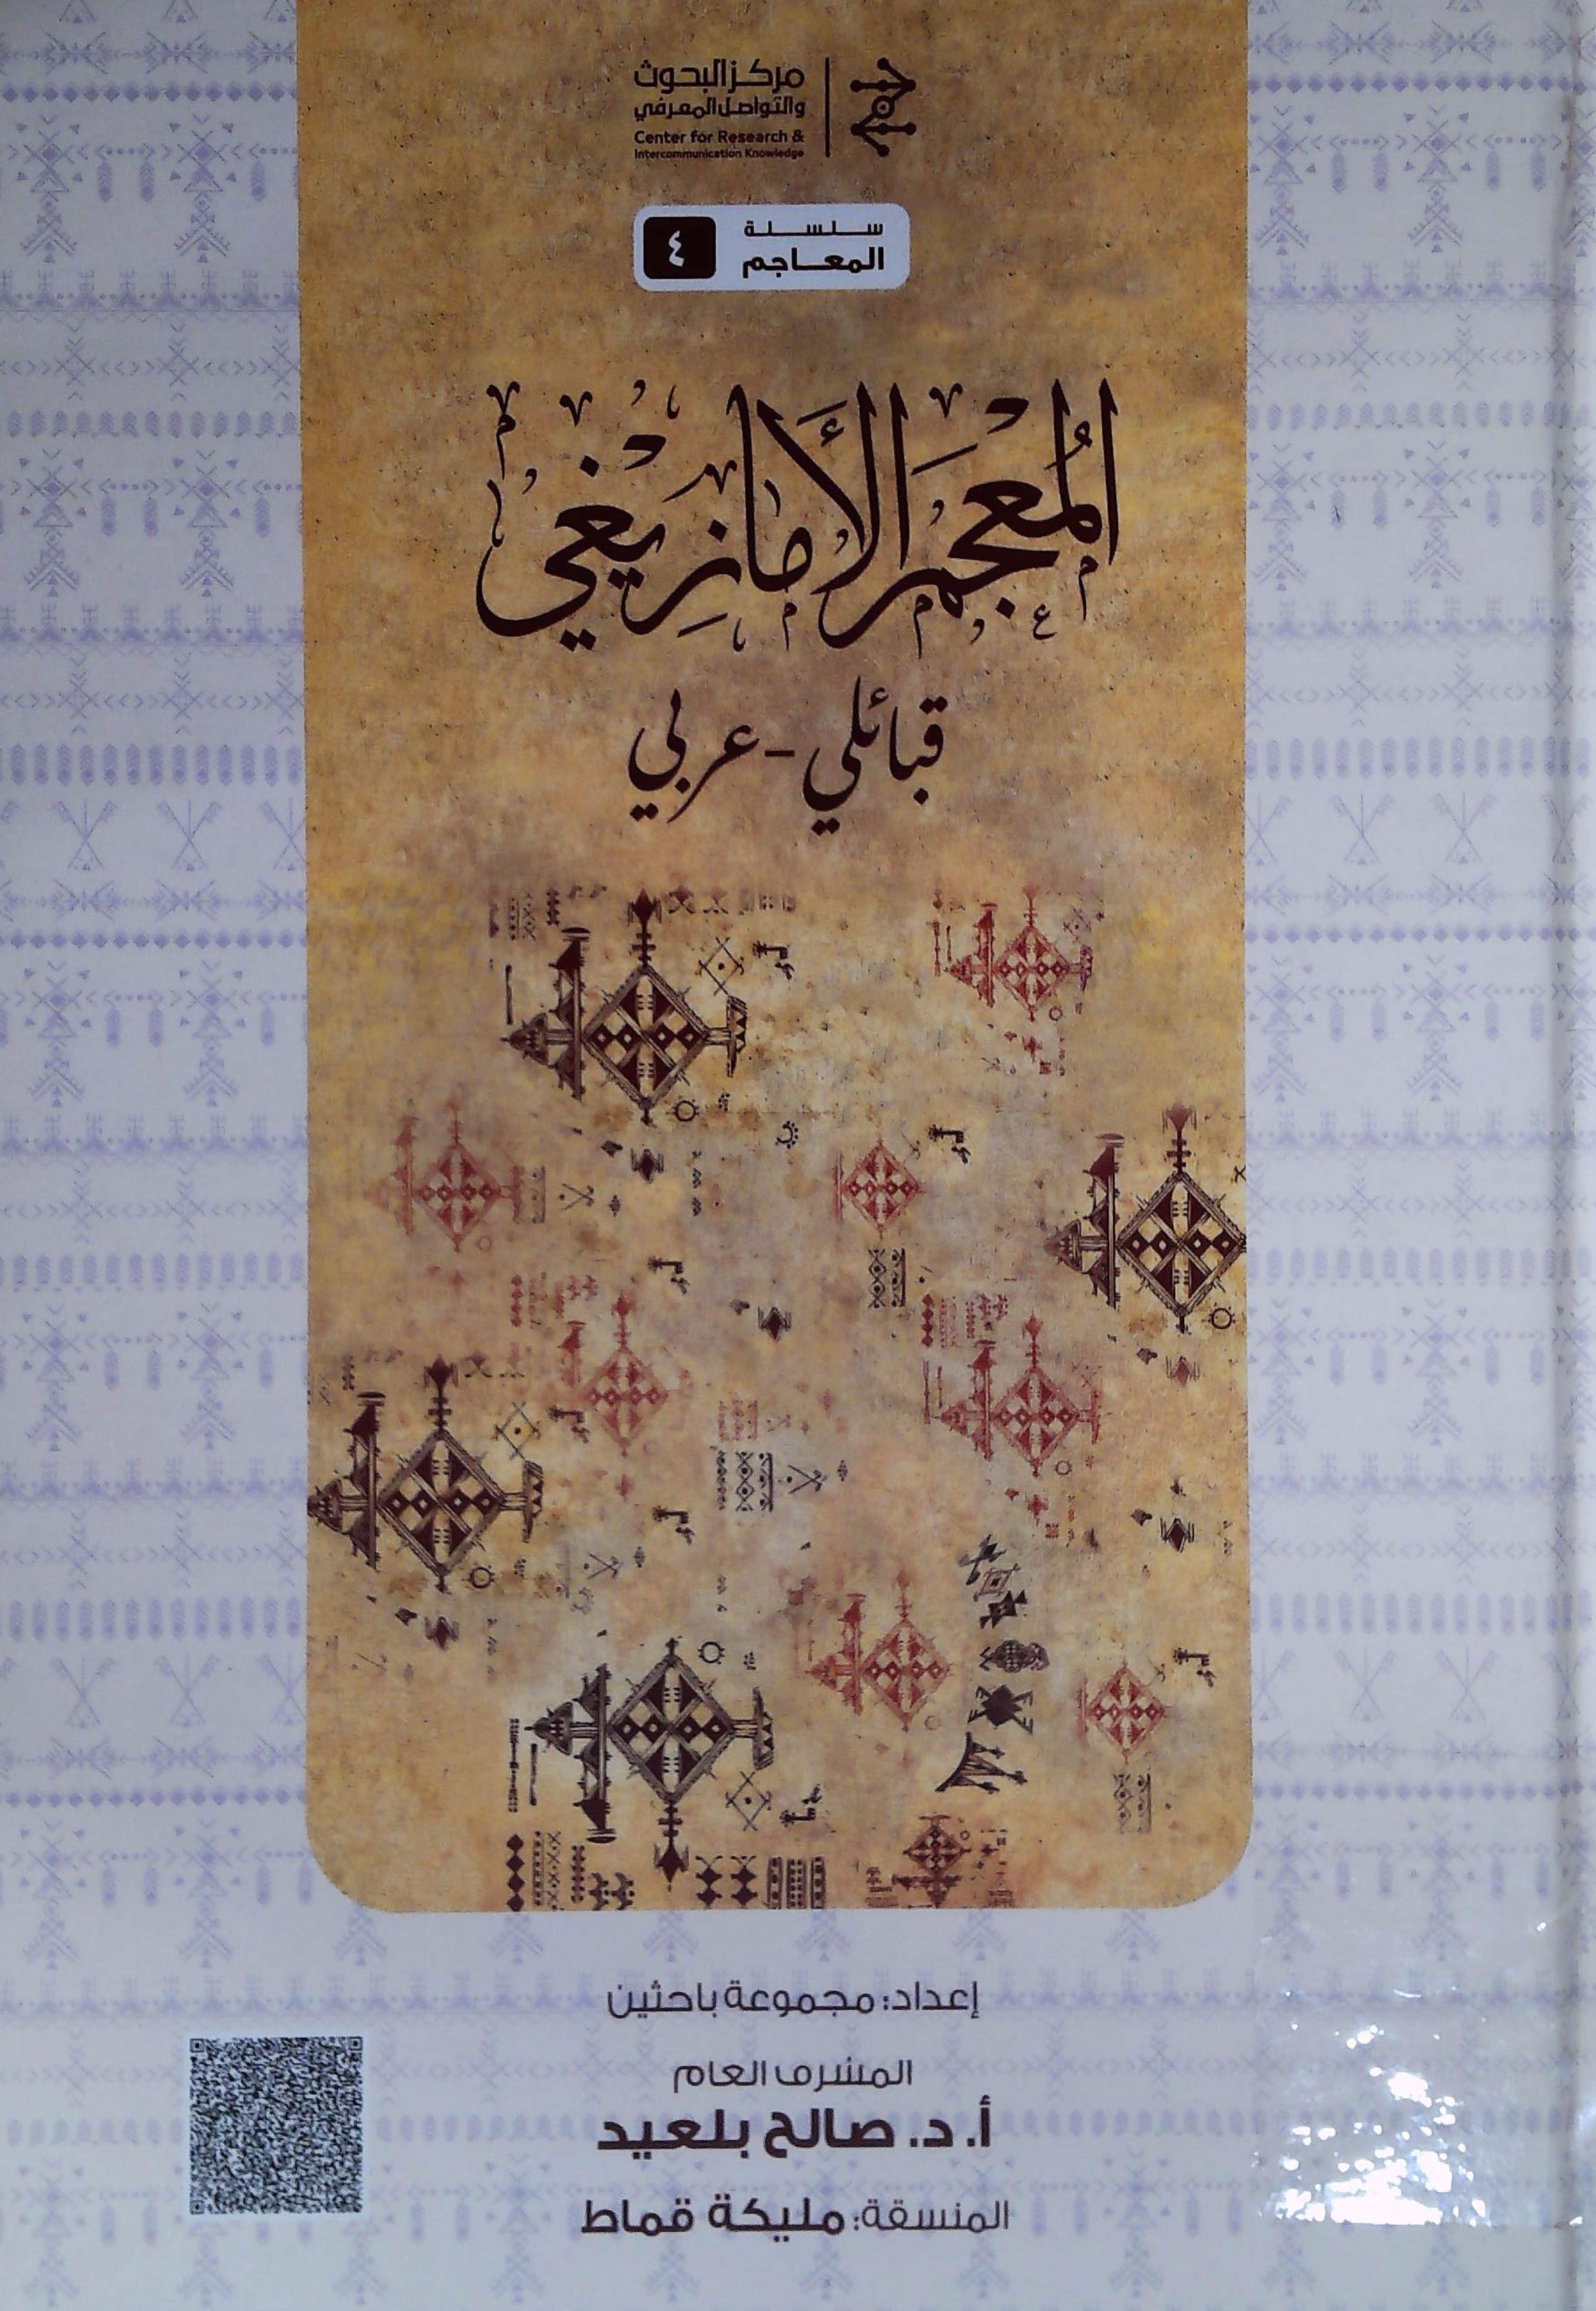 مركز البحوث
والتواصل المعرفي
Center for Research &
Intercommunication Knowledge
سلسلة
المعاجم
٤
المُعْجَم الأَمازِيغي
قبائلي - عربي
إعداد: مجموعة باحثين
المشرف العام
أ. د. صالح بلعيد
المنسقة: مليكة قماط